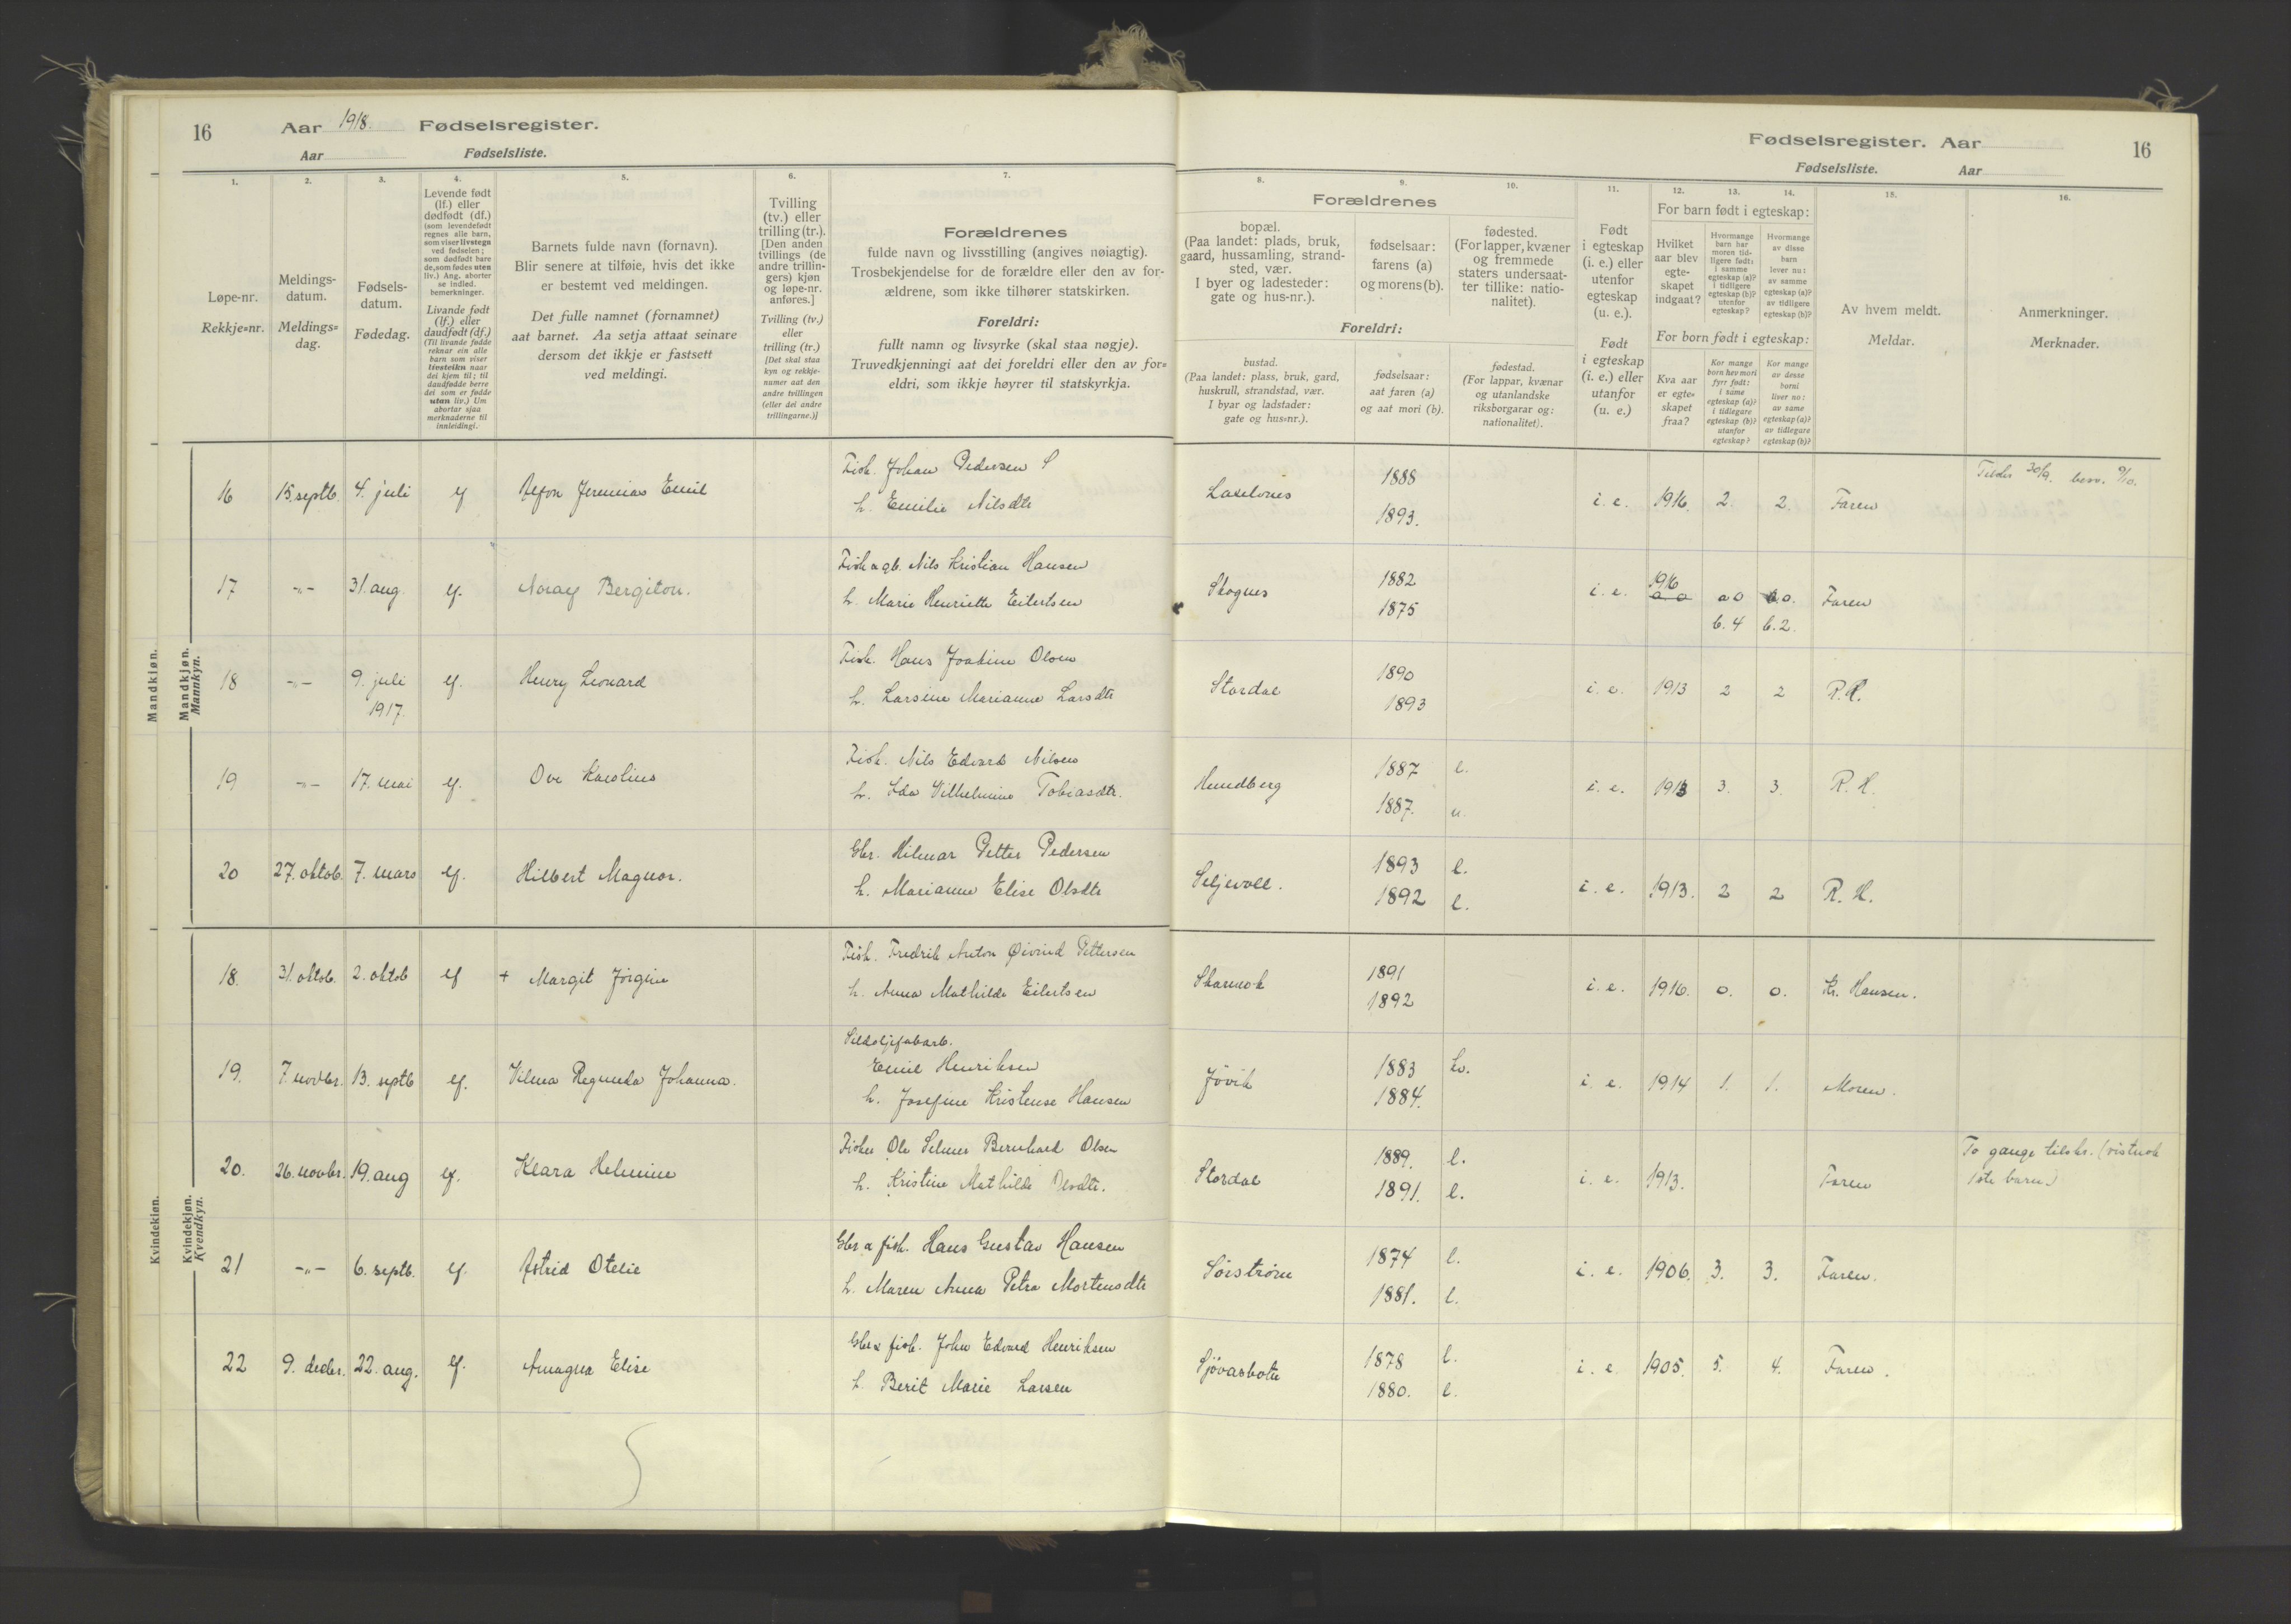 16 Aar 1918. Fødselsregister.
Aar Fødselsliste.
Fødselsregister. Aar 16
Fødselsliste. Aar
1. 2. 3. 4. 5. 6. 7. 8. 9. 10. 11. 12. 13. 14. 15. 16.
Løpe-nr.
Rekkje-nr.
Meldings-
datum.
Meldings-
dag.
Fødsels-
datum.
Fødedag.
Levende født
(lf.) eller
dødfødt (df.)
(som levendefødt
regnes alle barn,
som viser livstegn
ved fødselen;
som dødfødt bare
de, som fødes uten
liv.) Ang. aborter
se indled.
bemerkninger.
Livande født
(lf.) eller
daudfødt (df.)
(Til livande fødde
reknar ein alle
barn som viser
livsteikn naar
dei kjem til; til
daudfødde berre
dei som er fødde
utan liv.) Um
abortar sjaa
merknaderne til
innleidingi.
Barnets fulde navn (fornavn).
Blir senere at tilføie, hvis det ikke
er bestemt ved meldingen.
Det fulle namnet (fornamnet)
aat barnet. Aa setja attaat seinare
dersom det ikkje er fastsett
ved meldingi.
Tvilling
(tv.) eller
trilling (tr.).
[Den anden
tvillings (de
andre trillin-
gers) kjøn
og løpe-nr.
anføres.]
Tvilling (tv.)
eller
trilling (tr.)
[Det skal staa
kyn og rekkje-
numer aat den
andre tvillingen
(eller dei andre
trillingarne.)]
Forældrenes
fulde navn og livsstilling (angives nøiagtig).
Trosbekjendelse for de forældre eller den av for-
ældrene, som ikke tilhører statskirken.
Foreldri:
fullt namn og livsyrke (skal staa nøgje).
Truvedkjenningi aat dei foreldri eller den av for-
eldri, som ikkje høyrer til statskyrkja.
Forældrenes
bopæl.
(Paa landet: plads, bruk,
gaard, hussamling, strand-
sted, vær.
I byer og ladesteder:
gate og hus-nr.).
fødselsaar:
farens (a)
og morens (b).
fødested.
(For lapper, kvæner
og fremmede
staters undersaat-
ter tillike: natio-
nalitet).
Foreldri:
bustad.
(Paa landet: plass, bruk, gard,
huskrull, strandstad, vær.
I byar og ladstader:
gate og hus-nr.).
fødselsaar:
aat faren (a)
og aat mori (b).
fødestad.
(For lappar, kvænar
og utanlandske
riksborgarar og:
nationalitet).
Født
i egteskap
(i. e.) eller
utenfor
egteskap
(u. e.).
Født
i egteskap
(i. e.) eller
utanfor
(u. e.)
For barn født i egteskap:
Hvilket
aar blev
egte-
skapet
indgaat?
Hvormange
barn har
moren tid-
ligere født:
i samme
egteskap (a)?
i tidligere
egteskap (b)?
utenfor
egteskap?
Hvormange
av disse
barn
lever nu:
av samme
egteskap (a)?
av tidligere
egteskap (b)?
For born født i egteskap:
Kva aar
er egte-
skapet
fraa?
Kor mange
born hev mori
fyrr født:
i same
egteskap (a)?
i tidlegare
egteskap (b)?
utanfor
egteskap?
Kor mange
av desse
borni
liver no:
av same
egteskap (a)?
av tidlegare
egteskap (b)?
Av hvem meldt.
Meldar.
Anmerkninger.
Merknader.
Mandkjøn.
Mandkjøn.
Mannkyn.
16 15. septb. 4. juli lf Refon Jeremias Emil Fisk. Johan Pedersen
h. Emilie Nilsdtr 1888
1893. i. e. 1916. 2. 2. Faren 30/9. 9/10.
17 -"- 31. aug. lf. Noray Bergiton. Fisk a gb. Nils Kristian Hansen
h. Marie Henriette Eilertsen Skognes 1882
1875 i. e. 1916 a 0 a 0.
b. 4 b. 2. Faren
18 -"- 9. juli
1917. lf. Henry Leonard Fisk. Hans Joakim Olsen
h. Larsine Marianne Larsdtr Stordal 1890
1893 i. e. 1913 2 2 R. H.
19 -"- 17. mai lf. Ove Karolius Fisk. Nils Edvard Nilsen
h. Ida Vilhelmine Tobiasdtr. Hundberg 1887 l.
1887. u. i. e. 1913 3. 3. R. H.
20 27. oktob. 7. mars lf. Hilbert Magnor. Gbr. Hilmar Petter Pedersen
h. Marianne Elise Olsdtr Seljevoll. 1893 l.
1892 l. i. e. 1913. 2 2 R. H.
Kvindekjøn.
Kvindekjøn.
Kvendkyn.
18. 31. oktob. 2. oktob lf + Margit Jørgine Fisk. Fredrik Anton Øivind Pettersen
h. Anna Mathilde Eilertsen Skarmok 1891
1892 i. e. 1916. 0. 0. Kr. Hansen.
19. 7. novbr. 13. septb lf. Vilma Regunda Johanna. Sildoljefabarb.
Emil Henriksen
h. Josefine Kristense Hansen Jøvik 1883 kv.
1884. i. e. 1914 1. 1. Moren.
20. 26. novbr. 19. aug lf. Klara Helmine Fisker Ole Selmer Bernhard Olsen
h. Kristine Mathilde Olsdtr. Stordal 1889. l.
1891. l. i. e. 1913. Faren To gange tilskr. (vistnok
1ste barn.)
21 -"- 6. septb. lf. Astrid Otelie Gbr a fisk. Hans Gustav Hansen
h. Maren Anna Petra Mortensdtr Sørstrøm 1874 l.
1881. l. i. e. 1906. 3. 3. Faren.
22 9. decbr. 22. aug. lf. Amagna Elise Gbr a fisk. John Edvard Henriksen
h. Berit Marie Larsen Sjøvasbotn 1878 l.
1880. l. i. e. 1905. 5. 4. Faren.